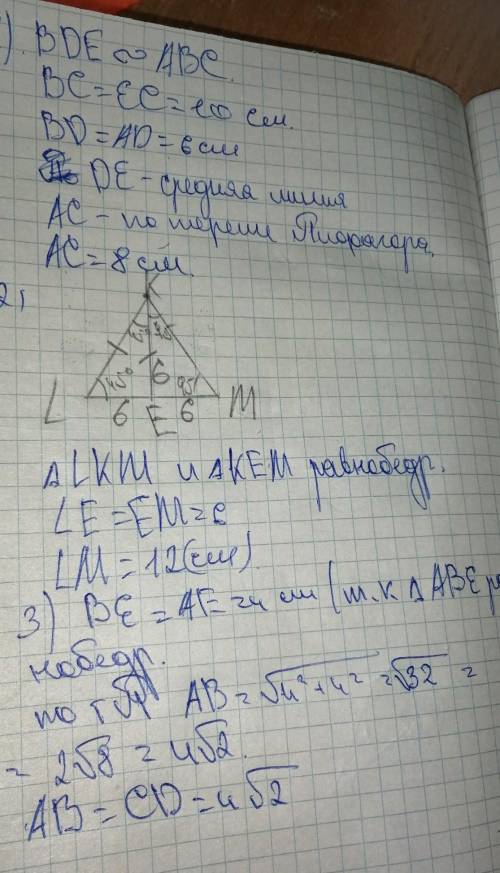 ). BDE ∾ ABC.
BC = EC = 10 см.
BD = AD = 6 см
DE - средняя линия
AC - по теореме Пифагора.
AC = 8 см.
2)
K
45° 45
45° 6 45
L 6 E 6 M
△LKM и △KEM равнобедр.
LE = EM = 6
LM = 12 (см)
3) BE = AE = 4 см (т.к △ABE ра
нобедр.
по т AB = √4²+4² = √32 =
= 2√8 = 4√2.
AB = CD = 4√2